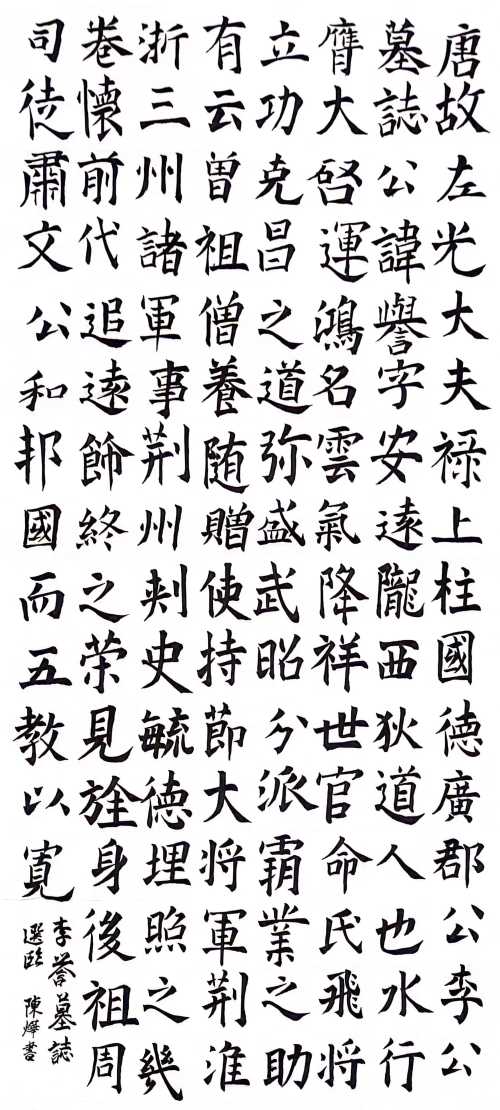 唐故左光大夫禄上柱國德廣郡公李公
墓誌公諱譽字安遠隴西狄道人也水行
膺大啓運鴻名雲氣降祥世官命氏飛將
立功克昌之道弥盛武昭分派霸業之助
有云曽祖僧養随贈使持節大将軍荆淮
浙三州諸軍事荆州刾史毓德埋照之幾
卷懷前代追遠飾終之荣見旌身後祖周
司徒肅文公和邦國而五教以寬
李誉墓誌
選臨 陳燁書